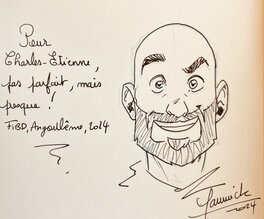 Pour
Charles-Etienne,
pas parfait, mais
presque !
FIBD, Angoulême, 2024
Yannick
2024